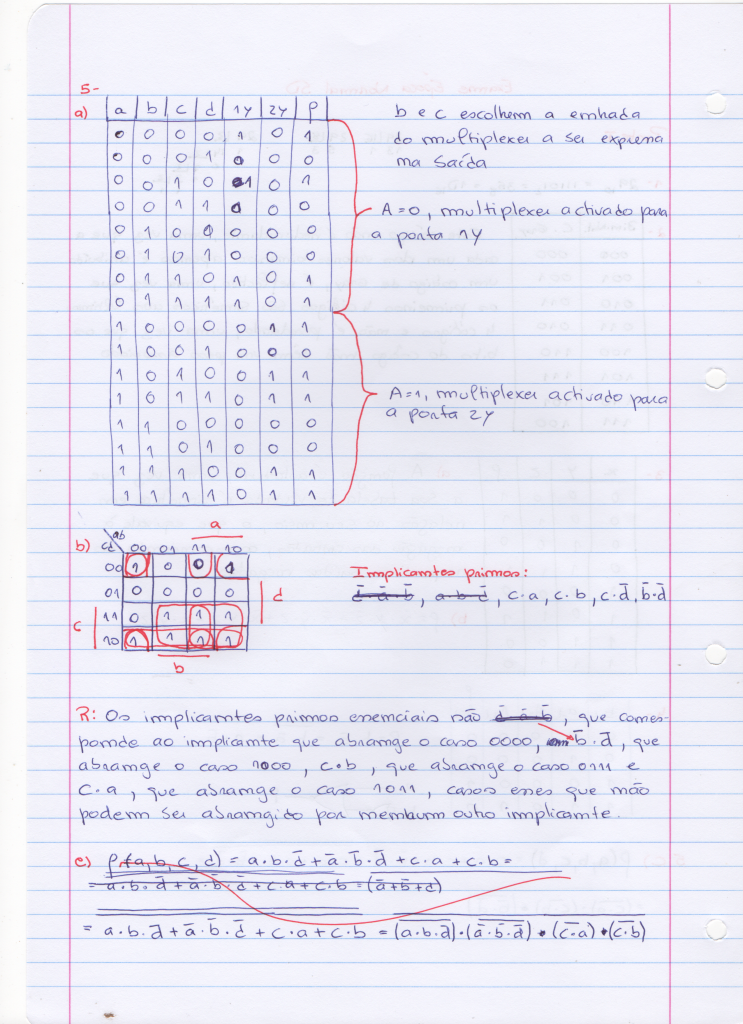 5-
a) a b c d 1Y 2Y f
0 0 0 0 1 0 1
0 0 0 1 0 0 0
0 0 1 0 1 0 1
0 0 1 1 0 0 0
0 1 0 0 0 0 0
0 1 0 1 0 0 0
0 1 1 0 1 0 1
0 1 1 1 1 0 1
1 0 0 0 0 1 1
1 0 0 1 0 0 0
1 0 1 0 0 1 1
1 0 1 1 0 1 1
1 1 0 0 0 0 0
1 1 0 1 0 0 0
1 1 1 0 0 1 1
1 1 1 1 0 1 1
b e c escolhem a entrada
do multiplexer a ser expressa
na saída
A=0, multiplexer activado para
a porta 1Y
A=1, multiplexer activado para
a porta 2Y
a
b) cd ab 00 01 11 10
00 1 0 0 1
01 0 0 0 0 d
c 11 0 1 1 1
10 1 1 1 1
b
Implicantes primos:
d̅ a̅ b̅, a·b·d̅, c·a, c·b, c·d̅, b̅·d̅
R: Os implicantes primos essenciais são d̅ a̅ b̅, que corres-
ponde ao implicante que abrange o caso 0000, b̅·d̅, que
abrange o caso 1000, c·b, que abrange o caso 0111 e
c·a, que abrange o caso 1011, casos esses que não
podem ser abrangido por nenhum outro implicante.
c) f(a,b,c,d) = a·b·d̅ + a̅·b̅·d̅ + c·a + c·b =
= a·b·d̅ + a̅·b̅·d̅ + c·a + c·b = (a̅+b̅+d)
= a·b·d̅ + a̅·b̅·d̅ + c·a + c·b = (a·b·d̅)·(a̅·b̅·d̅)·(c·a)·(c·b)